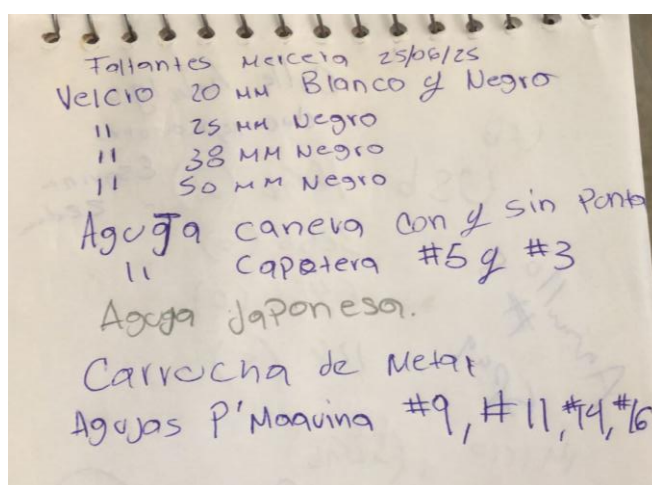 Faltantes Merceria 25/06/25
Velcro 20 MM Blanco y Negro
11 25 MM Negro
11 38 MM Negro
11 50 MM Negro
Aguja caneva con y sin Ponta
11 Capotera #5 y #3
Aguga Japonesa.
Carrucha de Metar
Agujas P'Maquina #9, #11, #14, #16